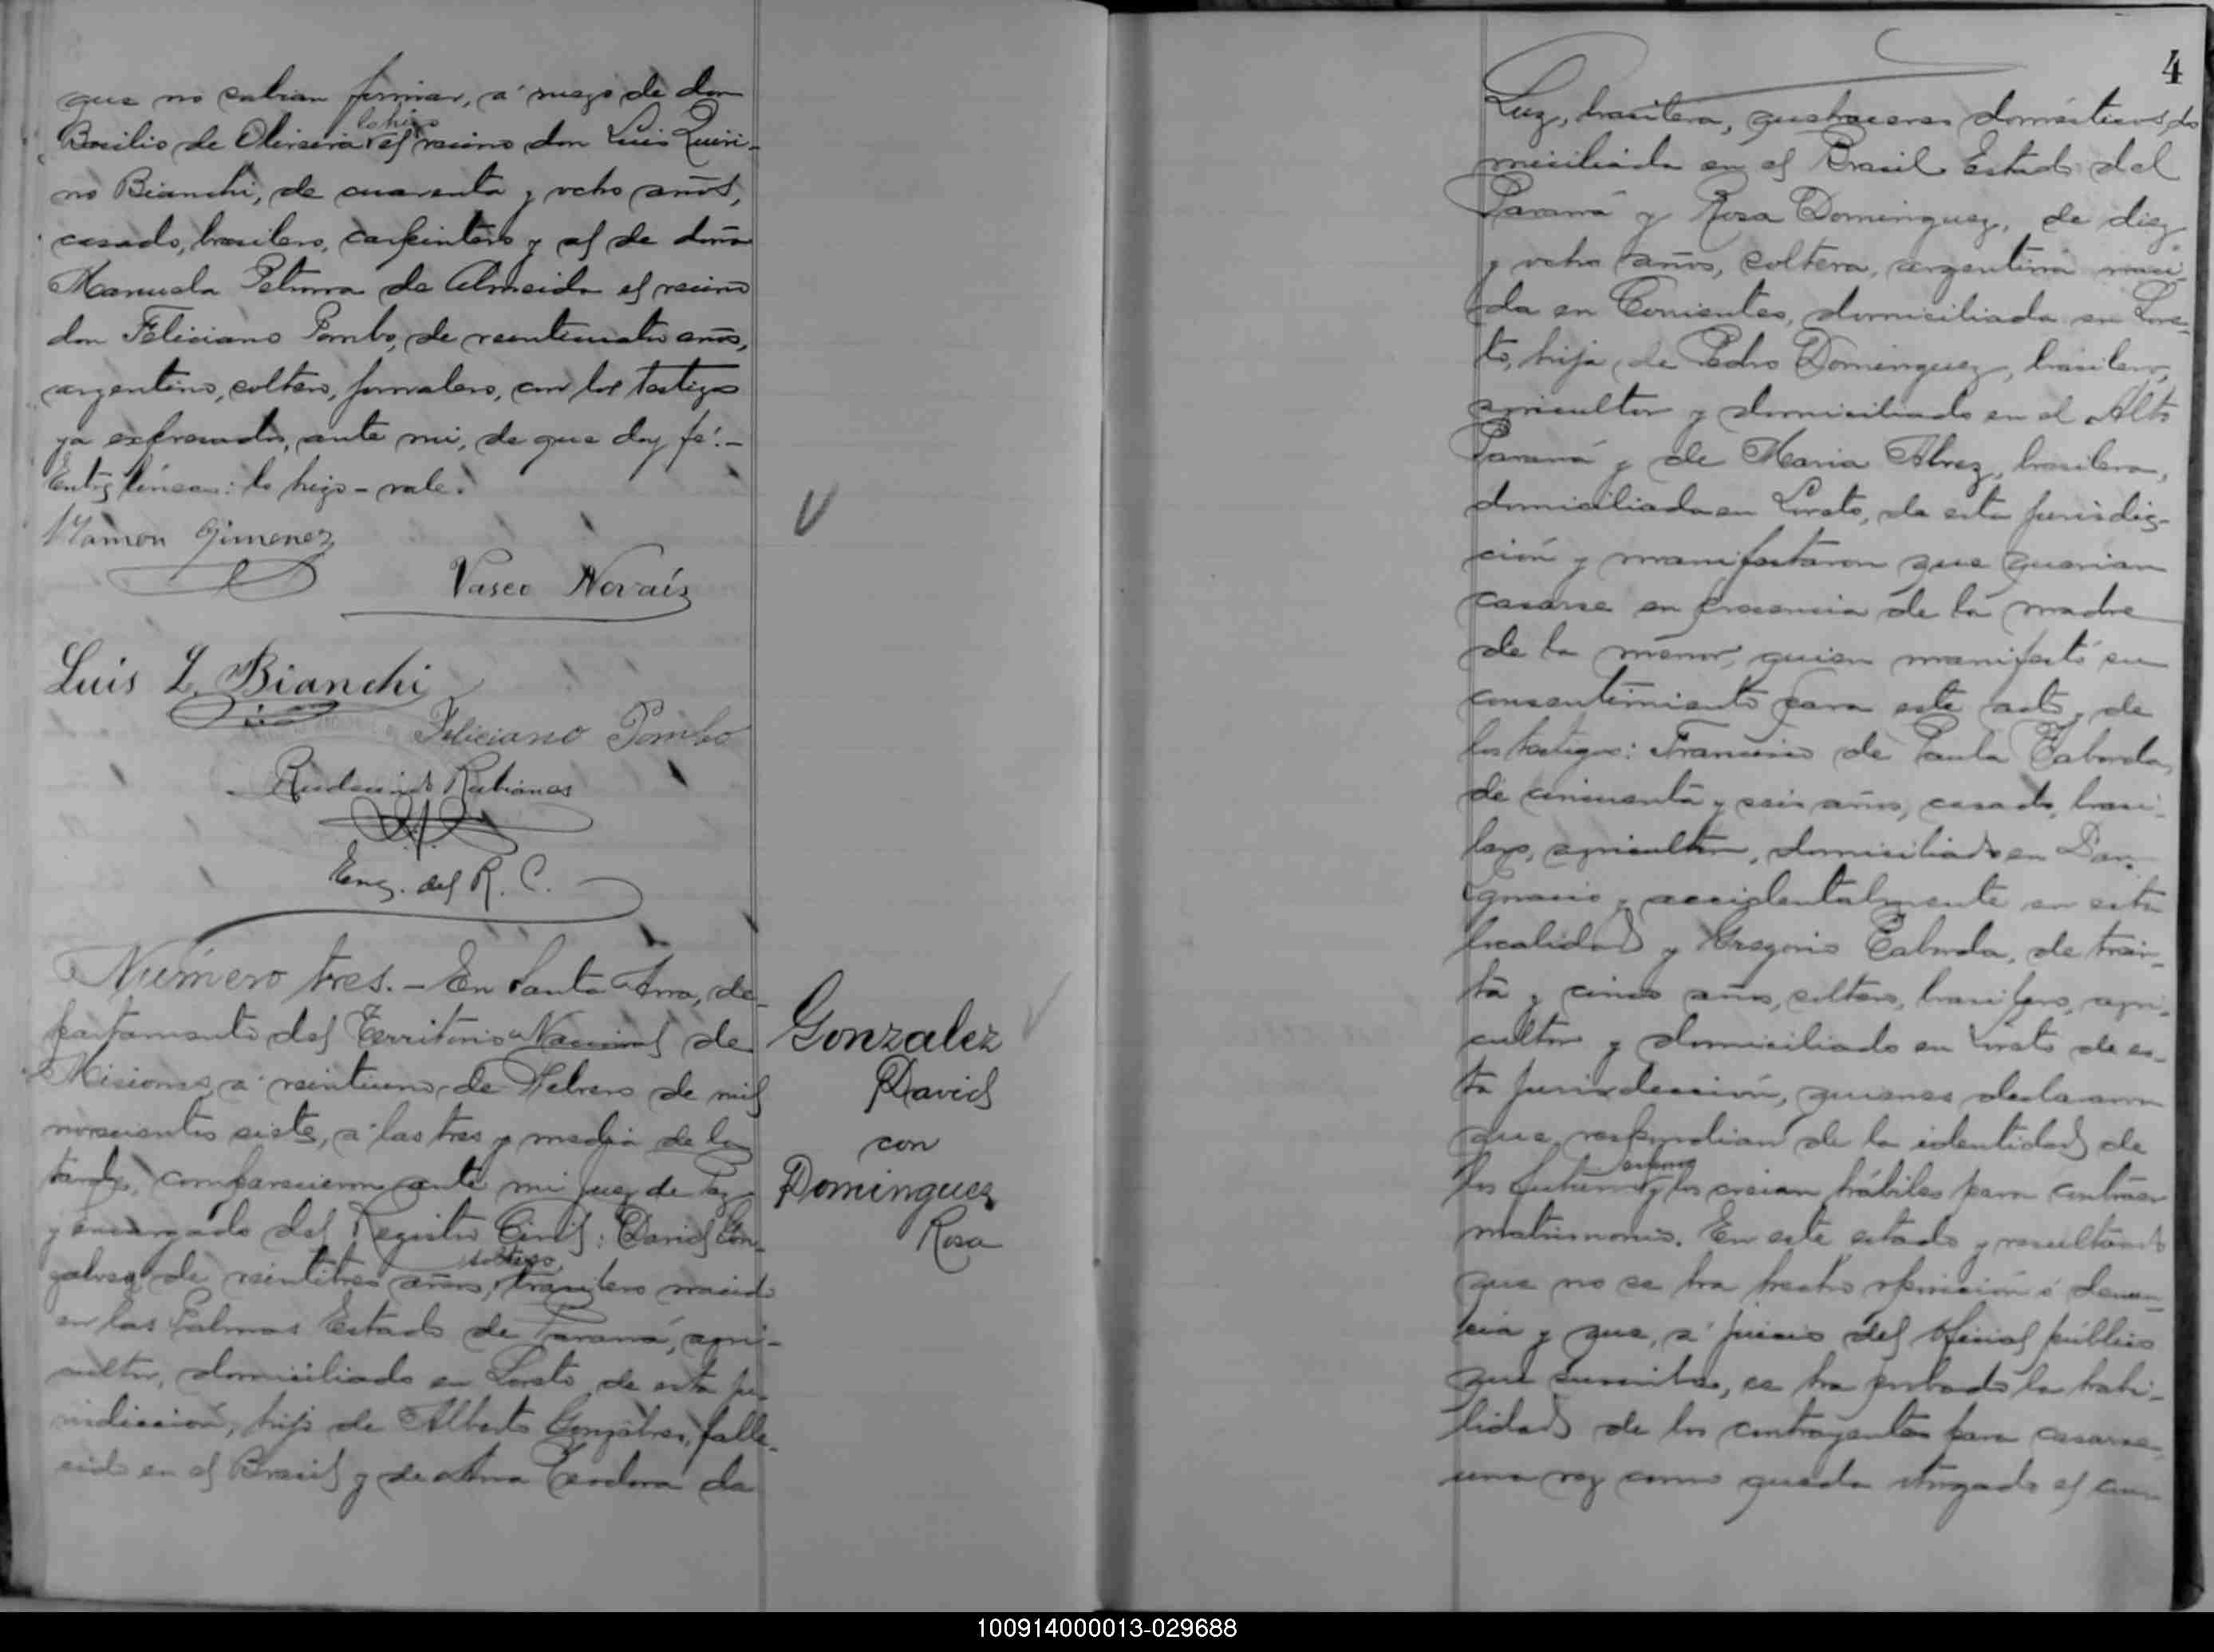 que no sabian firmar, a' ruego de don
Basilio de Oliveira lo hizo el vecino don Luis Quiri-
no Bianchi, de cuarenta y ocho años,
casado, brasilero, carpintero y al de doña
Manuela Petrona de Almeida el vecino
don Feliciano Pombo, de veinticuatro años,
argentino, soltero, jornalero, con los testigos
ya expresados, ante mi, de que doy fé.-
Entre líneas: lo hizo - vale.
Ramon Gimenez
Vasco Novais
Luis Q. Bianchi
Feliciano Pombo
Rubianes
Enc. del R. C.
Número tres. - En Santa Ana, de-
partamento del Territorio Nacional de
Misiones, a' veintiuno de Febrero de mil
novecientos siete, a' las tres y media de la
tarde, comparecieron ante mi Juez de Paz
y encargado del Registro Civil: David Gon-
zalves de veintitres años, soltero, brasilero nacido
en las Palmas Estado de Paraná, agri-
cultor, domiciliado en Loreto de esta ju-
risdicción, hijo de Alberto Gonzalves, falle-
cido en el Brasil y de Ana Teodora da
Gonzalez
David
con
Dominguez
Rosa
4
Luz, brasilera, quehaceres domésticos, do
miciliada en el Brasil Estado del
Paraná y Rosa Dominguez, de diez
y ocho años, soltera, argentina naci-
da en Corrientes, domiciliada en Lore-
to, hija de Pedro Dominguez, brasilero,
agricultor y domiciliado en el Alto
Paraná y de Maria Alvez, brasilera,
domiciliada en Loreto, de esta jurisdic-
ción y manifestaron que querian
casarse en presencia de la madre
de la menor, quien manifestó su
consentimiento para este acto y de
los testigos: Francisco de Paula Taborda,
de cincuenta y seis años, casado, brasi-
lero, agricultor, domiciliado en San
Ignacio y accidentalmente en esta
localidad y Gregorio Taborda, de trein-
ta y cinco años, soltero, brasilero, agri-
cultor y domiciliado en Loreto de es-
ta jurisdicción, quienes declararon
que respondian de la identidad de
los futuros esposos y los creian hábiles para contraer
matrimonio. En este estado y resultando
que no se ha hecho oposición ó denun-
cia y que, a' juicio del oficial público
que suscribe, se ha probado la habi-
lidad de los contrayentes para casarse,
una vez como queda otorgado el con